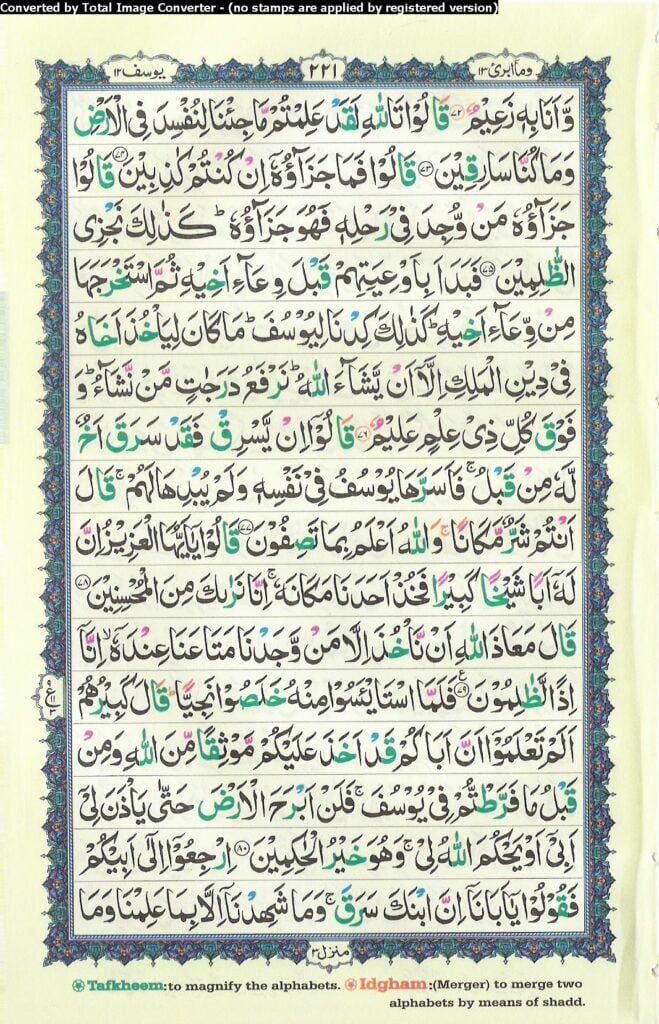 Converted by Total Image Converter - (no stamps are applied by registered version)
یوسف ۱۲
۲۲۱
وما ابرئ ۱۳
وَّ اَنَا بِهٖ زَعِیْمٌ ﴿۷۲﴾ قَالُوْا تَاللّٰهِ لَقَدْ عَلِمْتُمْ مَّا جِئْنَا لِنُفْسِدَ فِی الْاَرْضِ
وَمَا كُنَّا سَارِقِیْنَ ﴿۷۳﴾ قَالُوْا فَمَا جَزَآؤُهٗۤ اِنْ كُنْتُمْ كٰذِبِیْنَ ﴿۷۴﴾ قَالُوْا
جَزَآؤُهٗ مَنْ وُّجِدَ فِیْ رَحْلِهٖ فَهُوَ جَزَآؤُهٗ ؕ كَذٰلِكَ نَجْزِی
الظّٰلِمِیْنَ ﴿۷۵﴾ فَبَدَاَ بِاَوْعِیَتِهِمْ قَبْلَ وِعَآءِ اَخِیْهِ ثُمَّ اسْتَخْرَجَهَا
مِنْ وِّعَآءِ اَخِیْهِ ؕ كَذٰلِكَ كِدْنَا لِیُوْسُفَ ؕ مَا كَانَ لِیَاْخُذَ اَخَاهُ
فِیْ دِیْنِ الْمَلِكِ اِلَّاۤ اَنْ یَّشَآءَ اللّٰهُ ؕ نَرْفَعُ دَرَجٰتٍ مَّنْ نَّشَآءُ ؕ وَ
فَوْقَ كُلِّ ذِیْ عِلْمٍ عَلِیْمٌ ﴿۷۶﴾ قَالُوْۤا اِنْ یَّسْرِقْ فَقَدْ سَرَقَ اَخٌ
لَّهٗ مِنْ قَبْلُ ۚ فَاَسَرَّهَا یُوْسُفُ فِیْ نَفْسِهٖ وَلَمْ یُبْدِهَا لَهُمْ ۚ قَالَ
اَنْتُمْ شَرٌّ مَّكَانًا ۚ وَاللّٰهُ اَعْلَمُ بِمَا تَصِفُوْنَ ﴿۷۷﴾ قَالُوْا یٰۤاَیُّهَا الْعَزِیْزُ اِنَّ
لَهٗۤ اَبًا شَیْخًا كَبِیْرًا فَخُذْ اَحَدَنَا مَكَانَهٗ ۚ اِنَّا نَرٰىكَ مِنَ الْمُحْسِنِیْنَ ﴿۷۸﴾
قَالَ مَعَاذَ اللّٰهِ اَنْ نَّاْخُذَ اِلَّا مَنْ وَّجَدْنَا مَتَاعَنَا عِنْدَهٗۤ ۙ اِنَّاۤ
اِذًا لَّظٰلِمُوْنَ ﴿۷۹﴾ فَلَمَّا اسْتَایْـَٔسُوْا مِنْهُ خَلَصُوْا نَجِیًّا ؕ قَالَ كَبِیْرُهُمْ
اَلَمْ تَعْلَمُوْۤا اَنَّ اَبَاكُمْ قَدْ اَخَذَ عَلَیْكُمْ مَّوْثِقًا مِّنَ اللّٰهِ وَمِنْ
قَبْلُ مَا فَرَّطْتُّمْ فِیْ یُوْسُفَ ۚ فَلَنْ اَبْرَحَ الْاَرْضَ حَتّٰی یَاْذَنَ لِیْۤ
اَبِیْۤ اَوْ یَحْكُمَ اللّٰهُ لِیْ ۚ وَهُوَ خَیْرُ الْحٰكِمِیْنَ ﴿۸۰﴾ اِرْجِعُوْۤا اِلٰۤی اَبِیْكُمْ
فَقُوْلُوْا یٰۤاَبَانَاۤ اِنَّ ابْنَكَ سَرَقَ ۚ وَمَا شَهِدْنَاۤ اِلَّا بِمَا عَلِمْنَا وَمَا
منزل ۳
Tafkheem:to magnify the alphabets. Idgham:(Merger) to merge two
alphabets by means of shadd.